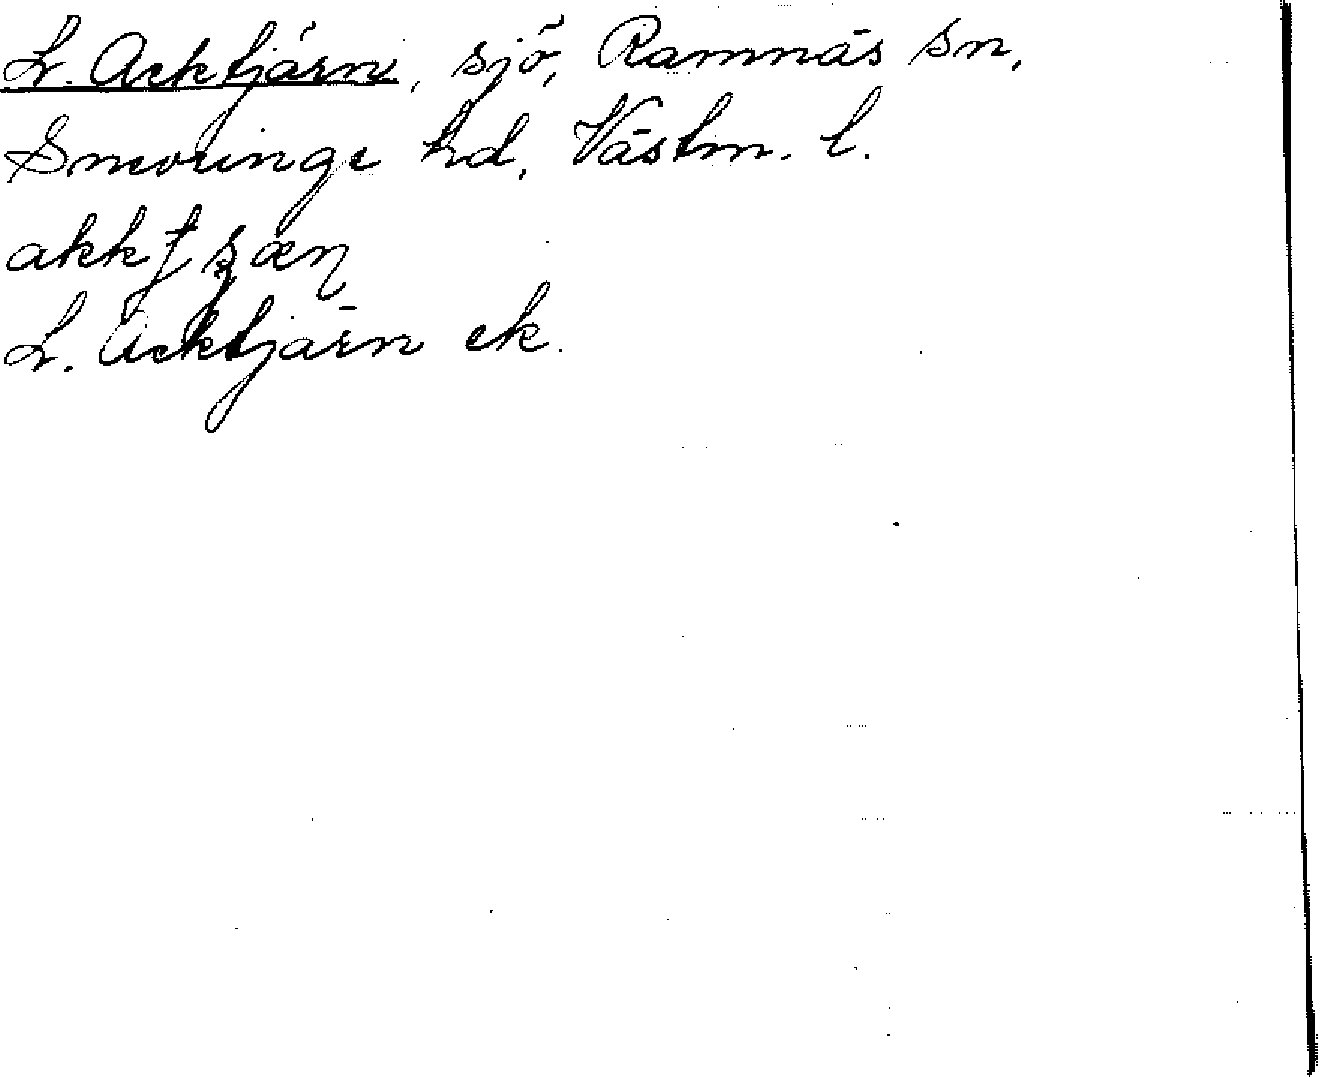 L. Acktjärn, sjö, Ramnäs sn,
Snevringe hd, Västm. l.
L. Acktjärn ek.